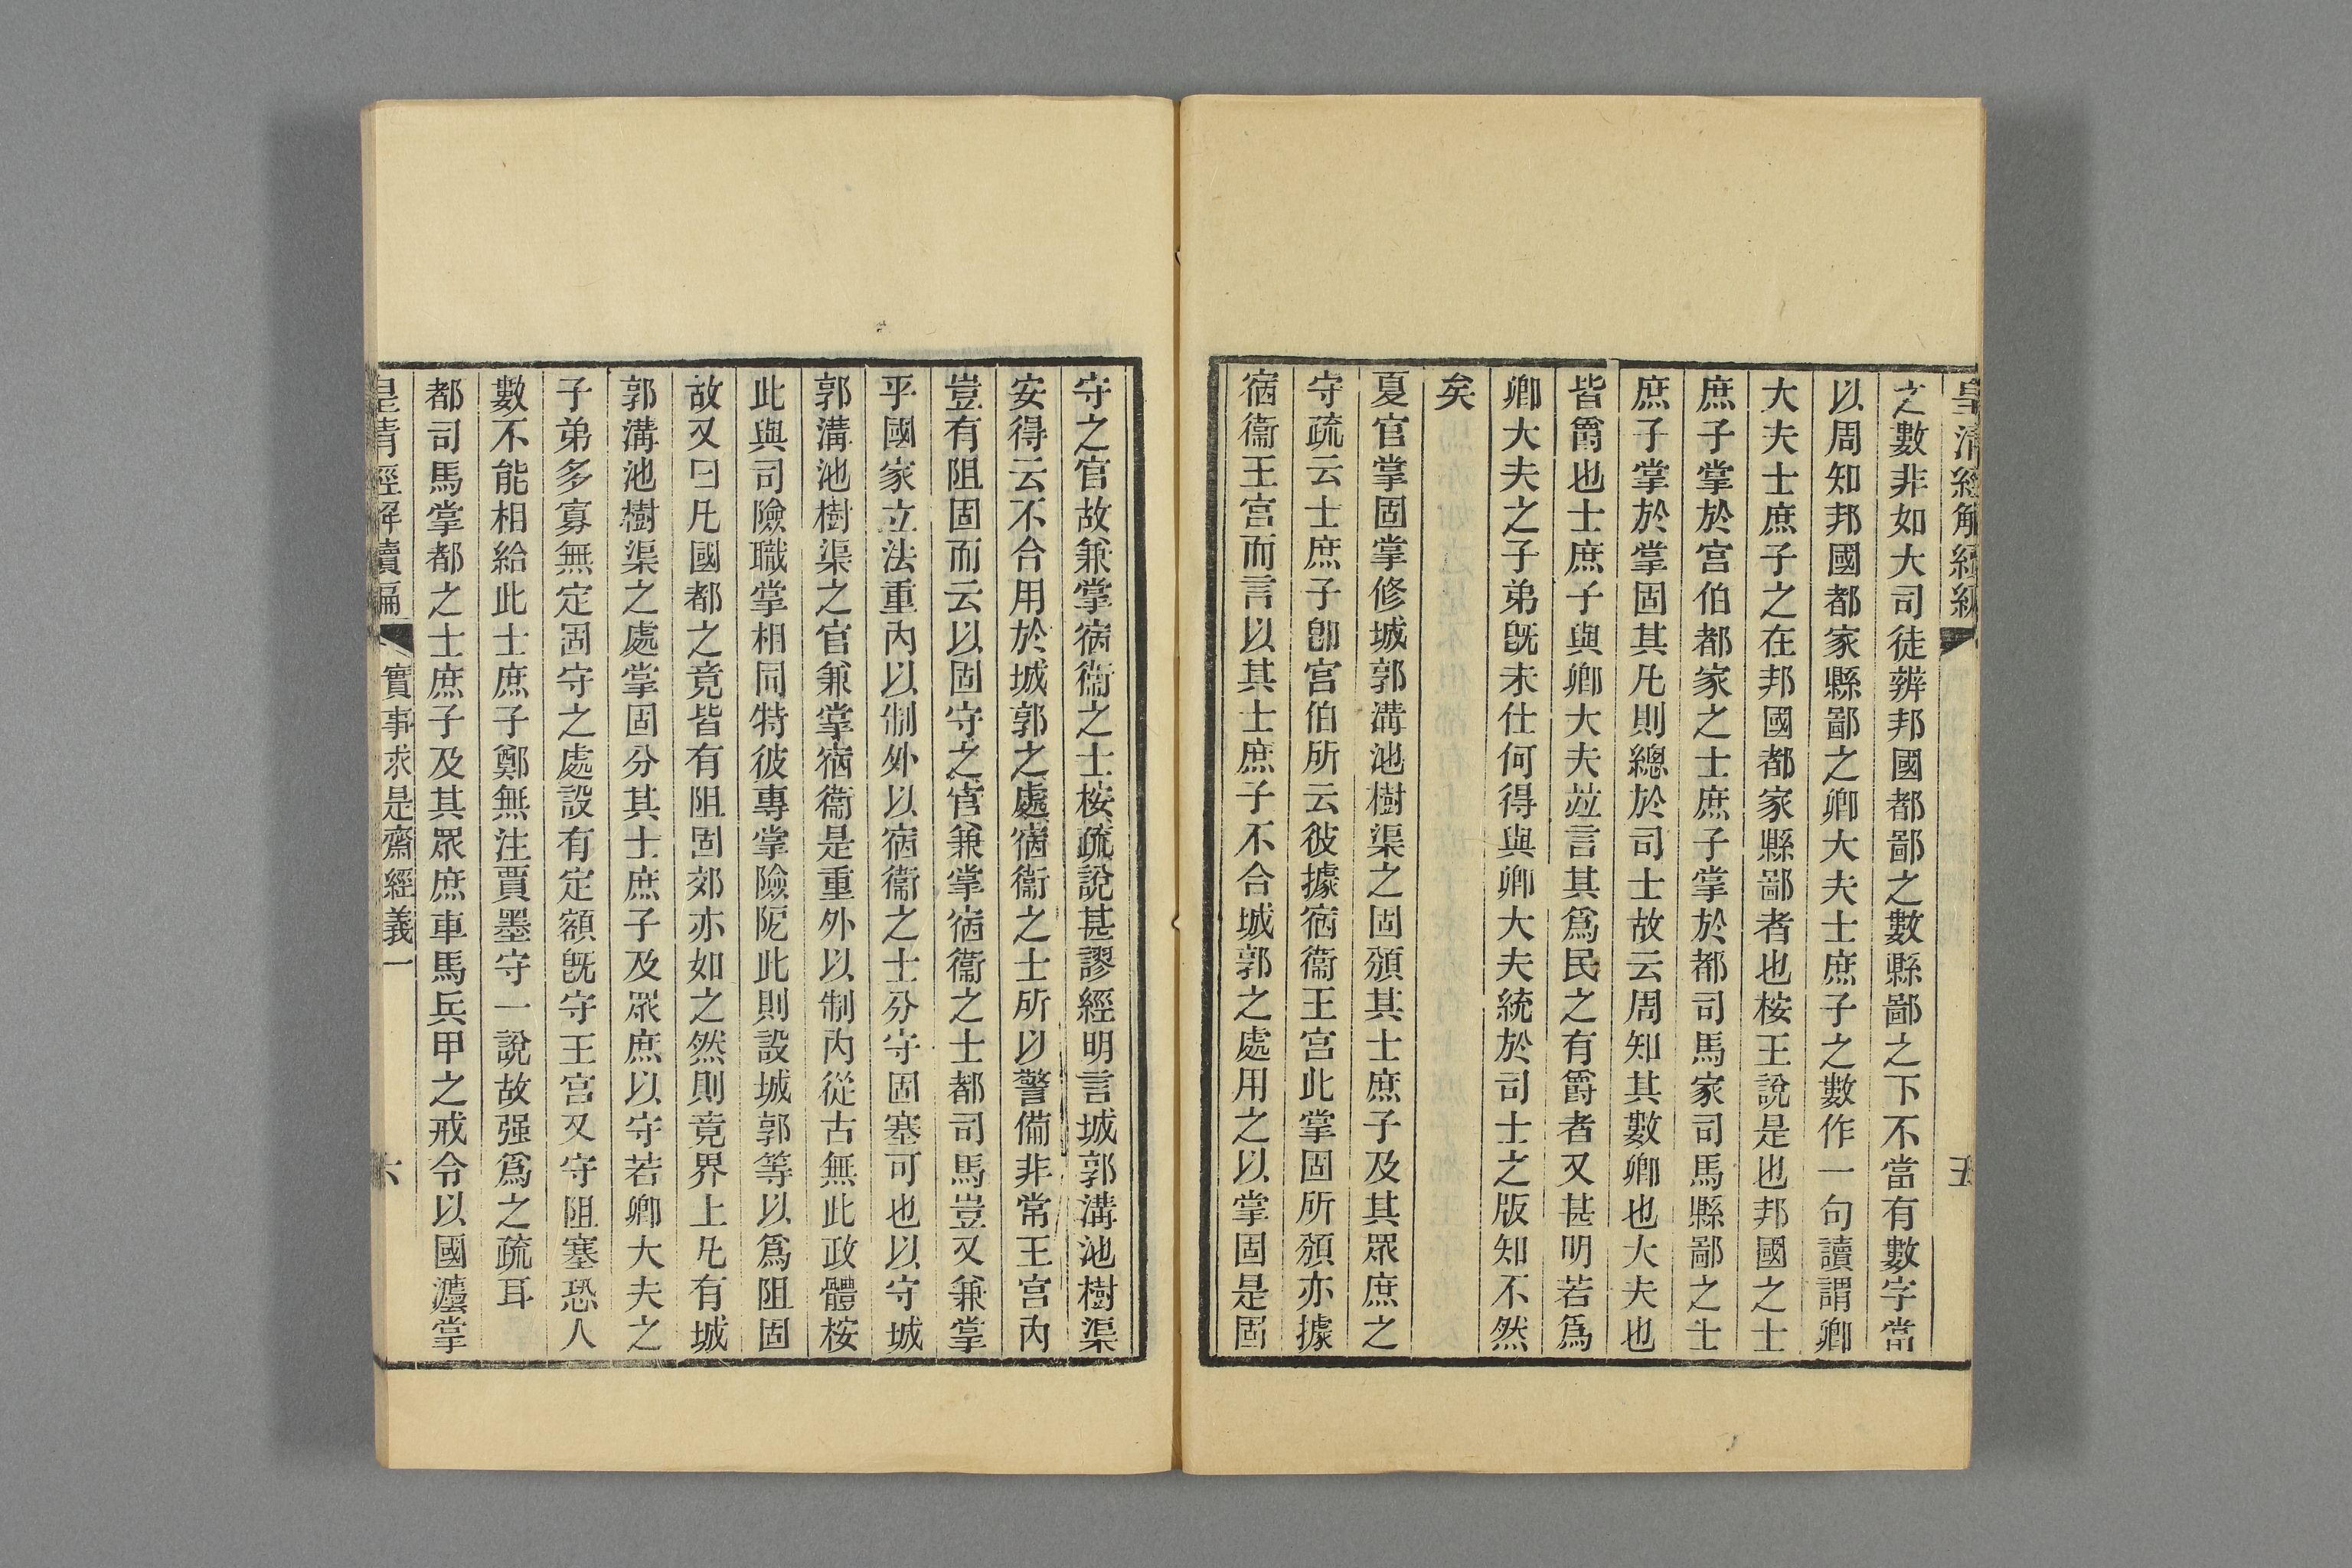 皇清經解續編
五
之數非如大司徒辨邦國都鄙之數縣鄙之下不當有數字當
以周知邦國都家縣鄙之卿大夫士庶子之數作一句讀謂卿
大夫士庶子之在邦國都家縣鄙者也桉王說是也邦國之士
庶子掌於宮伯都家之士庶子掌於都司馬家司馬縣鄙之士
庶子掌於掌固其凡則總於司士故云周知其數卿也大夫也
皆爵也士庶子與卿大夫竝言其爲民之有爵者又甚明若爲
卿大夫之子弟旣未仕何得與卿大夫統於司士之版知不然
矣
夏官掌固掌修城郭溝池樹渠之固頒其士庶子及其眾庶之
守疏云士庶子卽宮伯所云彼據宿衞王宮此掌固所頒亦據
宿衞王宮而言以其士庶子不合城郭之處用之以掌固是固
守之官故兼掌宿衞之士桉疏說甚謬經明言城郭溝池樹渠
安得云不合用於城郭之處宿衞之士所以警備非常王宮內
豈有阻固而云以固守之官兼掌宿衞之士都司馬豈又兼掌
乎國家立法重內以制外以宿衞之士分守固塞可也以守城
郭溝池樹渠之官兼掌宿衞是重外以制內從古無此政體桉
此與司險職掌相同特彼專掌險阨此則設城郭等以爲阻固
故又曰凡國都之竟皆有阻固郊亦如之然則竟界上凡有城
郭溝池樹渠之處掌固分其士庶子及眾庶以守若卿大夫之
子弟多寡無定固守之處設有定額旣守王宮又守阻塞恐人
數不能相給此士庶子鄭無注賈墨守一說故强爲之疏耳
都司馬掌都之士庶子及其眾庶車馬兵甲之戒令以國灋掌
皇清經解續編
實事求是齋經義一
六